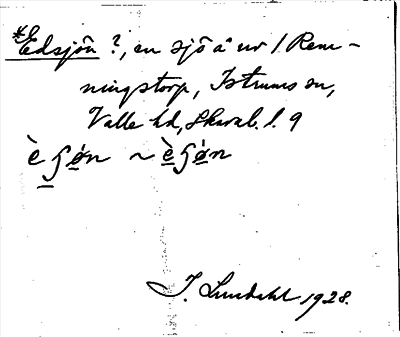 *Edsjön ?, en sjö å uv 1 Rem-
ningstorp, Istrums sn,
Valle hd, Skarab. l. 9
è ʃøn ~ è ʃøn
J. Lundahl 1928.